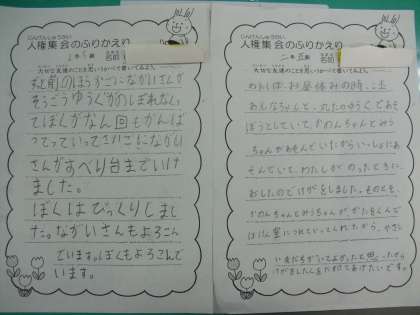 じんけんしゅうかい
人権集会のふりかえり
2年 組
名前
大切な友達のことを思いうかべて書いてみよう。
前のほうかごにながいさんが
そうごうゆうぐがのぼれなくて
てぼくがなん回もがんば
ってっていってさいごにながい
さんがすべり台までいけ
ました。
ぼくはびっくりしまし
た。ながいさんもよろこん
でいます。ぼくもよろこんで
います。
じんけんしゅうかい
人権集会のふりかえり
二年 組
名前
大切な友達のことを思いうかべて書いてみよう。
わたしは、お昼休みの時、
みなちゃんと、丸たのゆうぐであそ
ぼうとしていて、かのんちゃんとみう
ちゃんがあそんでいたからいっしょにあ
そんでいて、わたしがのったときに、
おしたのでけがをしました。そのとき、
かのんちゃんとみうちゃんがかたをくんで
ほけん室につれていってくれたから、やさし
い友だちがいてよかったと思ったから
けがをした人をたすけてあげたいです。